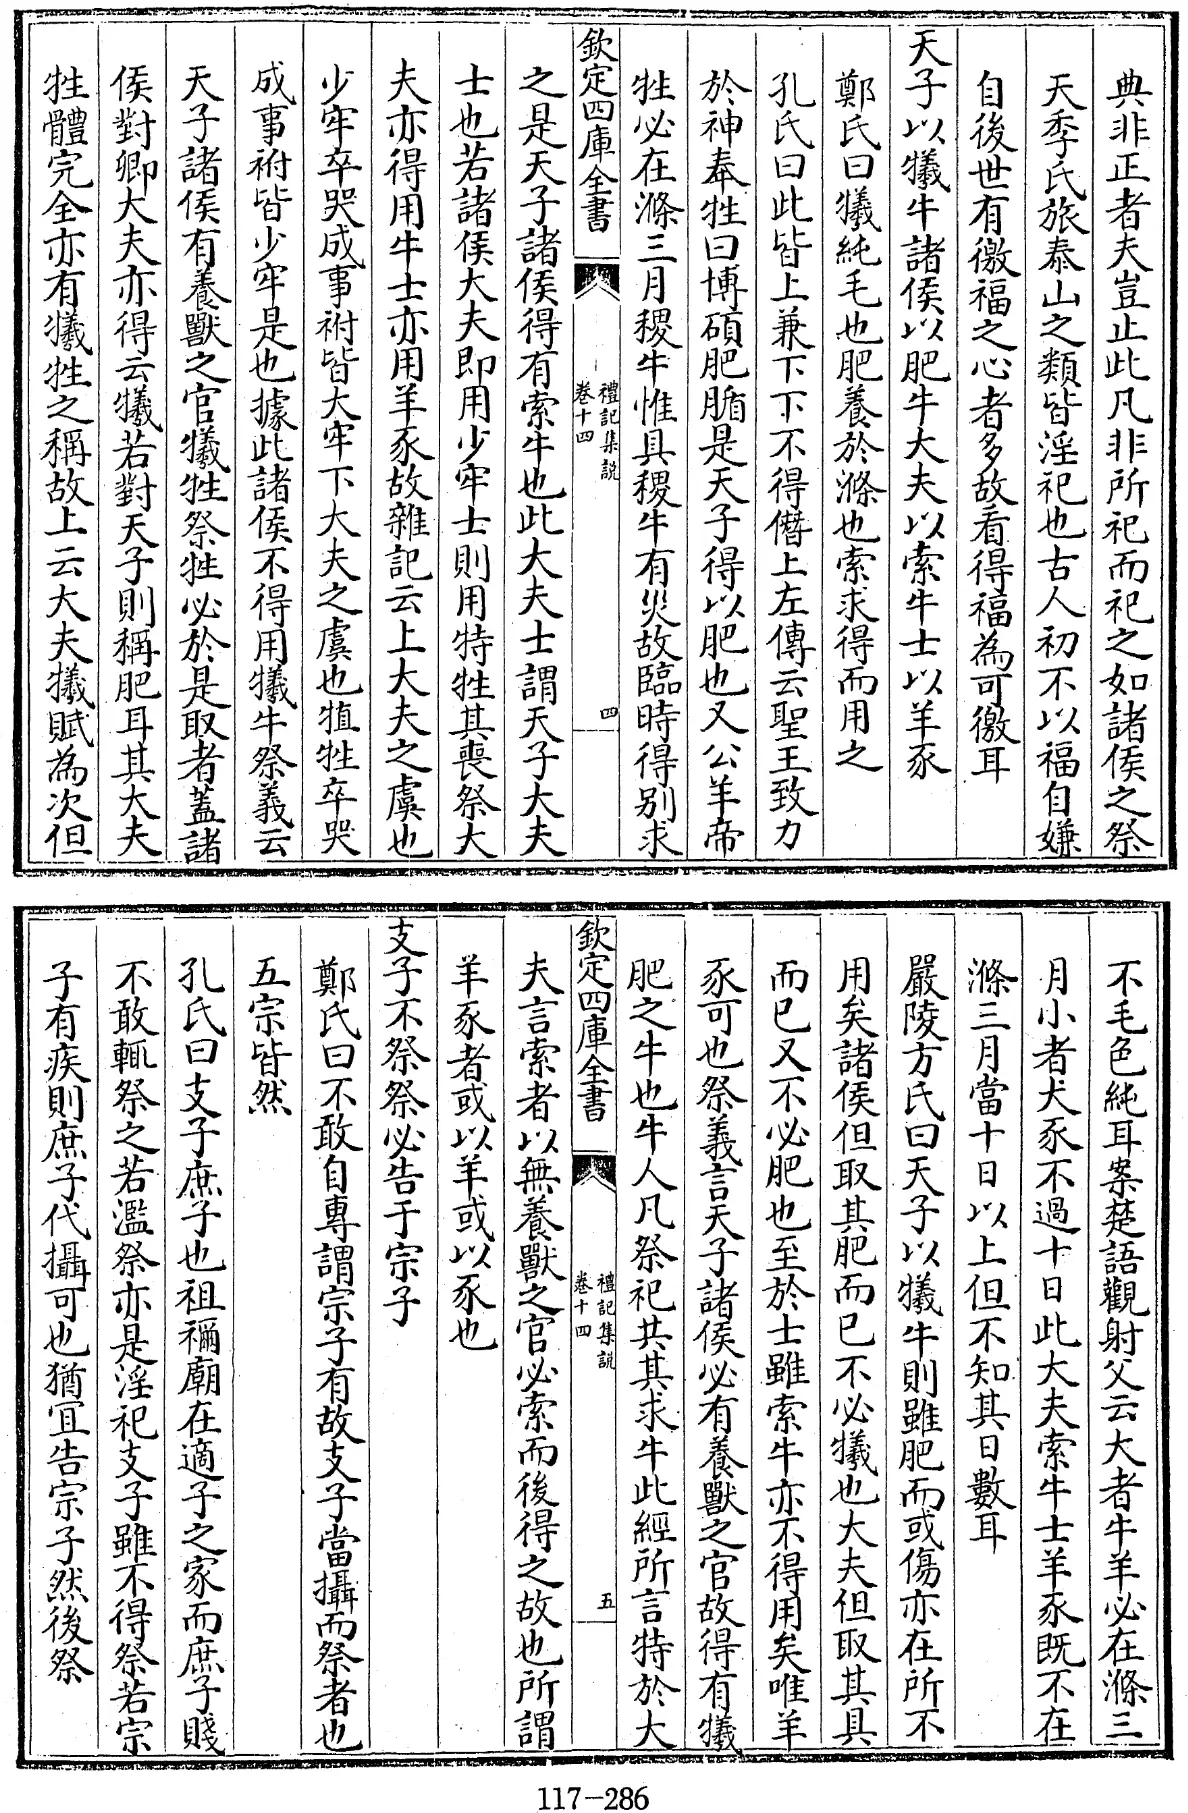 典非正者夫豈止此凡非所祀而祀之如諸侯之祭
天季氏旅泰山之類皆淫祀也古人初不以福自嫌
自後世有徼福之心者多故看得福為可徼耳
天子以犧牛諸侯以肥牛大夫以索牛士以羊豕
鄭氏曰犧純毛也肥養於滌也索求得而用之
孔氏曰此皆上兼下下不得僭上左傳云聖王致力
於神奉牲曰博碩肥腯是天子得以肥也又公羊帝
牲必在滌三月稷牛惟具稷牛有災故臨時得别求
欽定四庫全書
禮記集説
卷十四
四
之是天子諸侯得有索牛也此大夫士謂天子大夫
士也若諸侯大夫即用少牢士則用特牲其喪祭大
夫亦得用牛士亦用羊豕故雜記云上大夫之虞也
少牢卒哭成事祔皆大牢下大夫之虞也犆牲卒哭
成事祔皆少牢是也據此諸侯不得用犧牛祭義云
天子諸侯有養獸之官犧牲祭牲必於是取者蓋諸
侯對卿大夫亦得云犧若對天子則稱肥耳其大夫
牲體完全亦有犧牲之稱故上云大夫犧賦為次但
不毛色純耳案楚語觀射父云大者牛羊必在滌三
月小者犬豕不過十日此大夫索牛士羊豕既不在
滌三月當十日以上但不知其日數耳
嚴陵方氏曰天子以犧牛則雖肥而或傷亦在所不
用矣諸侯但取其肥而已不必犧也大夫但取其具
而已又不必肥也至於士雖索牛亦不得用矣唯羊
豕可也祭義言天子諸侯必有養獸之官故得有犧
肥之牛也牛人凡祭祀共其求牛此經所言特於大
欽定四庫全書
禮記集説
卷十四
五
夫言索者以無養獸之官必索而後得之故也所謂
羊豕者或以羊或以豕也
支子不祭祭必告于宗子
鄭氏曰不敢自專謂宗子有故支子當攝而祭者也
五宗皆然
孔氏曰支子庶子也祖禰廟在適子之家而庶子賤
不敢輒祭之若濫祭亦是淫祀支子雖不得祭若宗
子有疾則庶子代攝可也猶宜告宗子然後祭
117-286